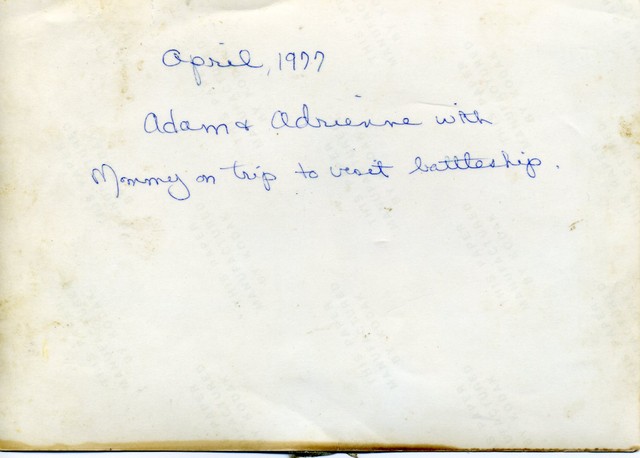 April, 1977
Adam & Adrienne with
Mommy on trip to visit battleship.